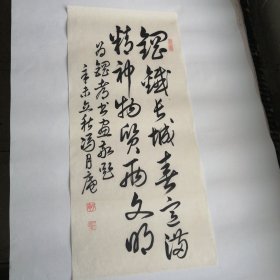 钢铁长城春意满
精神物质两文明
为钢考书画展题
辛未立秋冯月庵